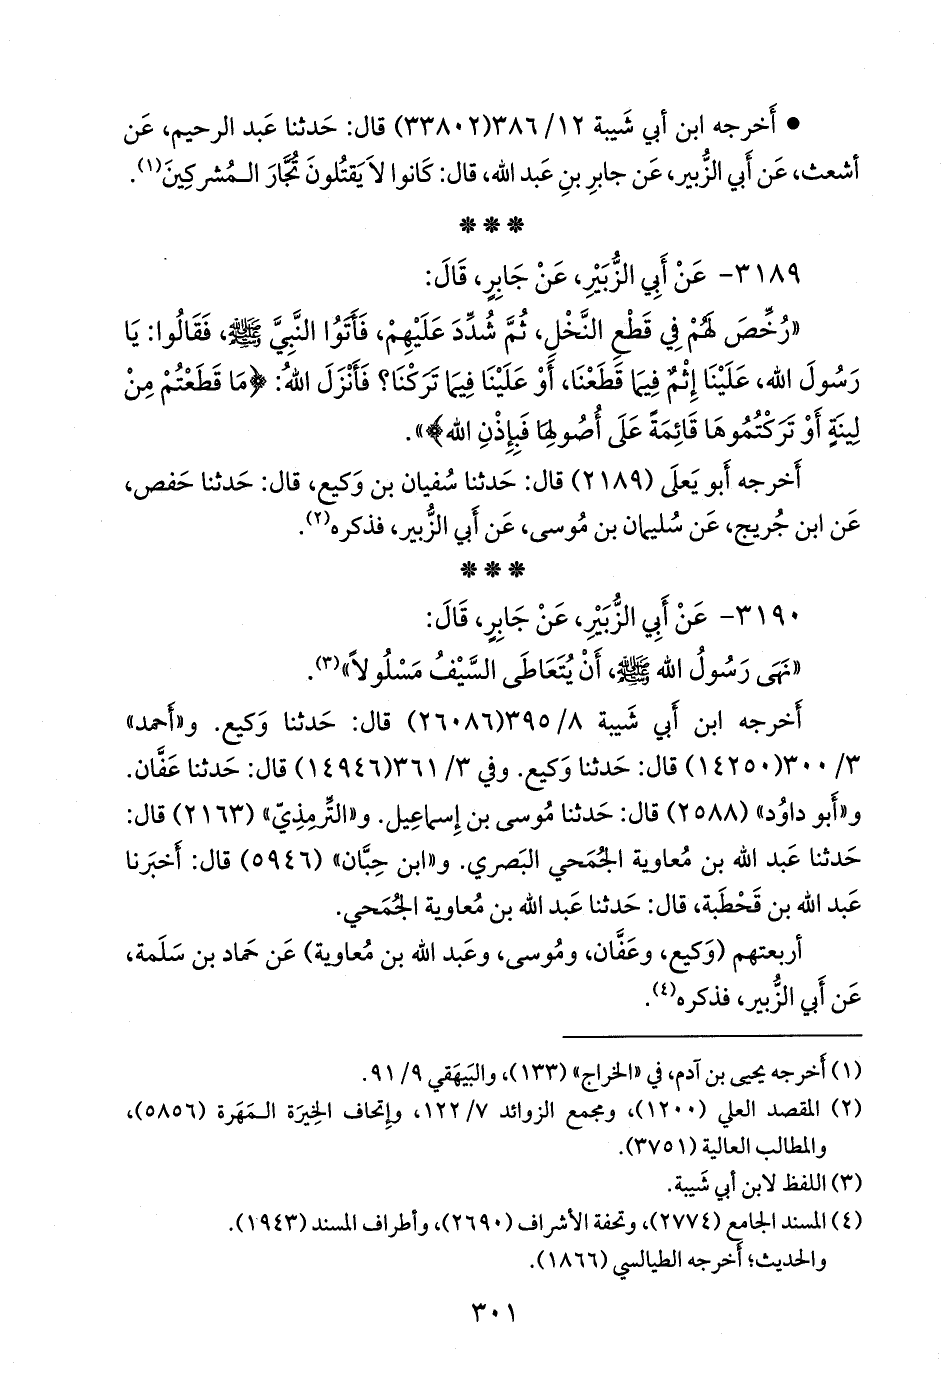 • أَخرجه ابن أبي شَيبة ١٢/ ٣٨٦(٣٣٨٠٢) قال: حَدثنا عَبد الرحيم، عَن
أشعث، عَن أَبي الزُّبير، عَن جابرِ بنِ عَبد الله، قال: كَانوا لاَ يَقتُلُونَ تُجَّارَ الـمُشركِينَ(١).
* * *
٣١٨٩- عَنْ أَبِي الزُّبَيْرِ، عَنْ جَابِرٍ، قَالَ:
«رُخِّصَ لَهُمْ فِي قَطْعِ النَّخْلِ، ثُمَّ شُدِّدَ عَلَيْهِمْ، فَأَتَوُا النَّبِيَّ ﷺ، فَقَالُوا: يَا
رَسُولَ الله، عَلَيْنَا إِثْمٌ فِيمَا قَطَعْنَا، أَوْ عَلَيْنَا فِيمَا تَرَكْنَا؟ فَأَنْزَلَ اللهُ: ﴿مَا قَطَعْتُمْ مِنْ
لِينَةٍ أَوْ تَرَكْتُمُوهَا قَائِمَةً عَلَى أُصُولِهَا فَبِإِذْنِ الله﴾».
أَخرجه أَبو يَعلَى (٢١٨٩) قال: حَدثنا سُفيان بن وَكيع، قال: حَدثنا حَفص،
عَن ابن جُريج، عَن سُليمان بن مُوسى، عَن أَبي الزُّبير، فذكره(٢).
* * *
٣١٩٠- عَنْ أَبِي الزُّبَيْرِ، عَنْ جَابِرٍ، قَالَ:
«نَهَى رَسُولُ الله ﷺ، أَنْ يُتَعَاطَى السَّيْفُ مَسْلُولاً»(٣).
أَخرجه ابن أَبي شَيبة ٨/ ٣٩٥(٢٦٠٨٦) قال: حَدثنا وَكيع. و«أَحمد»
٣/ ٣٠٠(١٤٢٥٠) قال: حَدثنا وَكيع. وفي ٣/ ٣٦١(١٤٩٤٦) قال: حَدثنا عَفَّان.
و«أَبو داوُد» (٢٥٨٨) قال: حَدثنا مُوسى بن إِسماعيل. و«التِّرمِذيّ» (٢١٦٣) قال:
حَدثنا عَبد الله بن مُعاوية الجُمَحي البَصري. و«ابن حِبَّان» (٥٩٤٦) قال: أَخبَرنا
عَبد الله بن قَحْطَبة، قال: حَدثنا عَبد الله بن مُعاوية الجُمَحي.
أربعتهم (وَكيع، وعَفَّان، ومُوسى، وعَبد الله بن مُعاوية) عَن حَماد بن سَلَمة،
عَن أَبي الزُّبير، فذكره(٤).
(١) أَخرجه يحيى بن آدم، في «الخراج» (١٣٣)، والبَيهَقي ٩/ ٩١.
(٢) المقصد العلي (١٢٠٠)، ومجمع الزوائد ٧/ ١٢٢، وإِتحاف الخِيرَة الـمَهَرة (٥٨٥٦)،
والمطالب العالية (٣٧٥١).
(٣) اللفظ لابن أبي شَيبة.
(٤) المسند الجامع (٢٧٧٤)، وتحفة الأشراف (٢٦٩٠)، وأطراف المسند (١٩٤٣).
والحديث؛ أَخرجه الطيالسي (١٨٦٦).
٣٠١